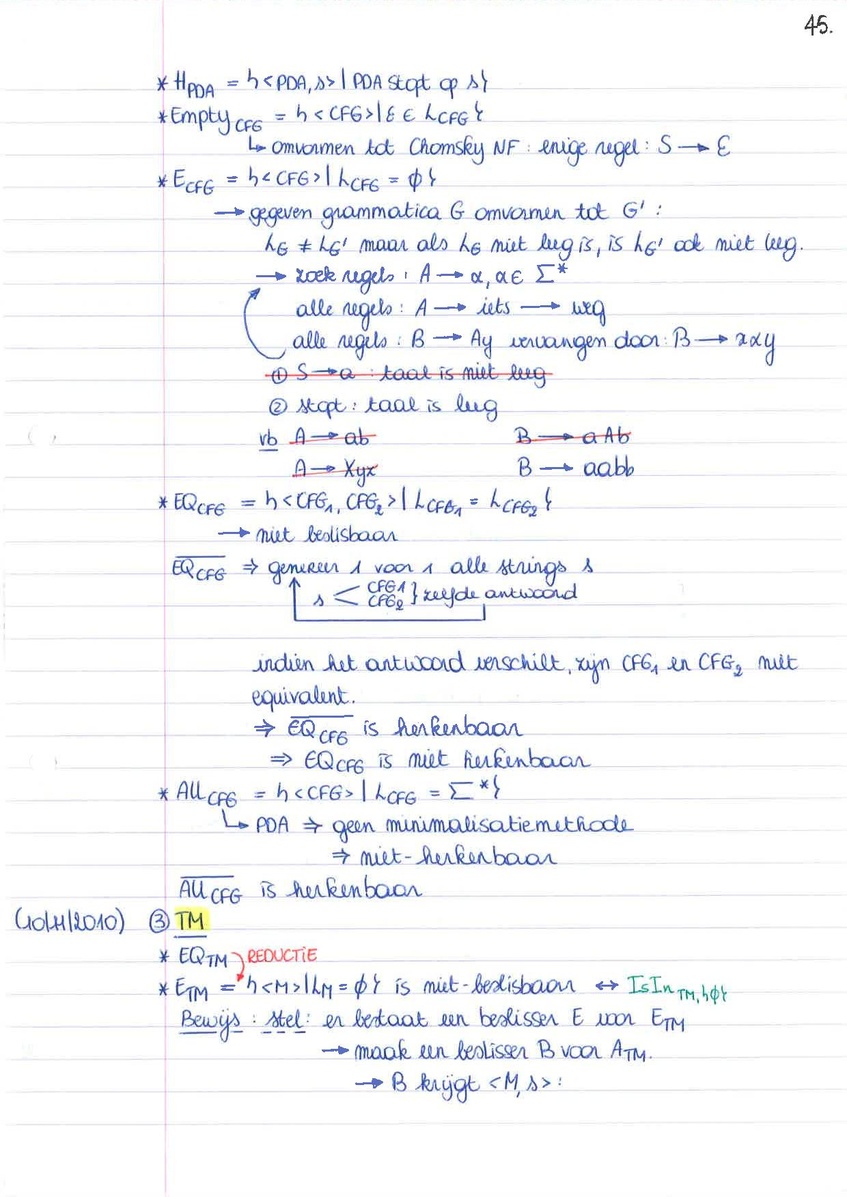 45.
* H_PDA = {<PDA,s> | PDA stopt op s}
* Empty_CFG = {<CFG> | ε ∈ L_CFG}
↳ omvormen tot Chomsky NF : enige regel : S → ε
* E_CFG = {<CFG> | L_CFG = ϕ}
→ gegeven grammatica G omvormen tot G' :
L_G ≠ L_G' maar als L_G niet leeg is, is L_G' ook niet leeg.
→ zoek regels : A → α, α ∈ Σ*
alle regels : A → iets → weg
alle regels : B → Ay vervangen door : B → xαy
① S → a : taal is niet leeg
② stopt : taal is leeg
vb A → ab B → aAb
A → Xyx B → aabb
* EQ_CFG = {<CFG₁, CFG₂> | L_CFG₁ = L_CFG₂}
→ niet beslisbaar
\overline{EQ_CFG} ⇒ genereer 1 voor 1 alle strings s
s < CFG1 CFG2 } zelfde antwoord
indien het antwoord verschilt, zijn CFG₁ en CFG₂ niet
equivalent.
⇒ \overline{EQ_CFG} is herkenbaar
⇒ EQ_CFG is niet herkenbaar
* All_CFG = {<CFG> | L_CFG = Σ*}
↳ PDA ⇒ geen minimalisatiemethode
⇒ niet-herkenbaar
\overline{All_CFG} is herkenbaar
③ TM
* EQ_TM REDUCTIE
* E_TM = {<M> | L_M = ϕ} is niet-beslisbaar ↔ IsIn_TM,{ϕ}
Bewijs : stel : er bestaat een beslisser E voor E_TM
→ maak een beslisser B voor A_TM.
→ B krijgt <M,s> :